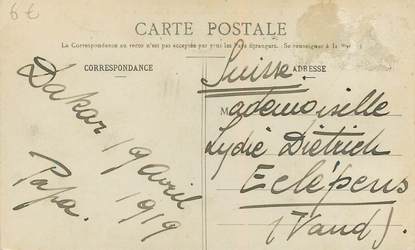 6€
CARTE POSTALE
La Correspondance au recto n'est pas acceptée par tous les Pays étrangers. Se renseigner à la
CORRESPONDANCE
ADRESSE
Dakar 19 avril
1919
Papa.
Suisse
Mademoiselle
Lydie Dietrich
Eclépens
(Vaud).